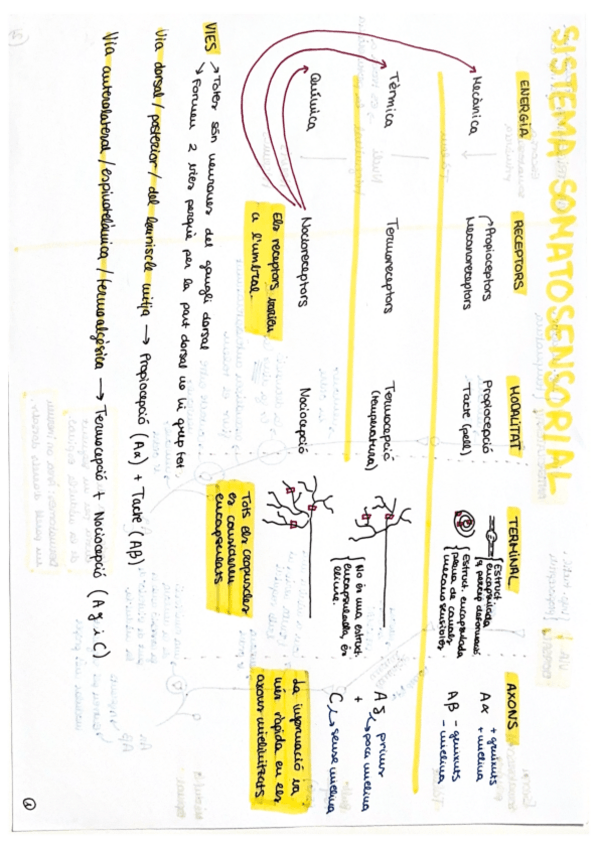 SISTEMA SOMATOSENSORIAL
ENERGIA RECEPTORS MODALITAT TERMINAL AXONS
Mecànica
Propioceptors
Mecanoreceptors
Propiocepció
Tacte (pell)
Estruct.
encapsulada
i percep deformació
Estruct. encapsulada
plena de canals
mecanosensibles
Aα + gruixuts
+ mielina
Aβ - gruixuts
- mielina
Tèrmica
Termoreceptors
Termocepció
(temperatura)
No és una estruct.
encapsulada, és
lliure.
Aδ prims
poca mielina
+
C sense mielina
Química
Nocioreceptors
Nociocepció
Els receptors varien
a l'umbral.
Tots els corpuscles
es consideren
encapsulats
La informació va
més ràpida en els
axons mielinitzats
VIES
Totes són neurones del gangli dorsal
Formen 2 vies perquè per la part dorsal no hi cap tot.
Via dorsal / posterior / del lemniscle mitjà → Propiocepció (Aα) + Tacte (Aβ)
Via anterolateral / espinotalàmica / termoalgèsica → Termocepció + Nociocepció (Aδ i C)
1